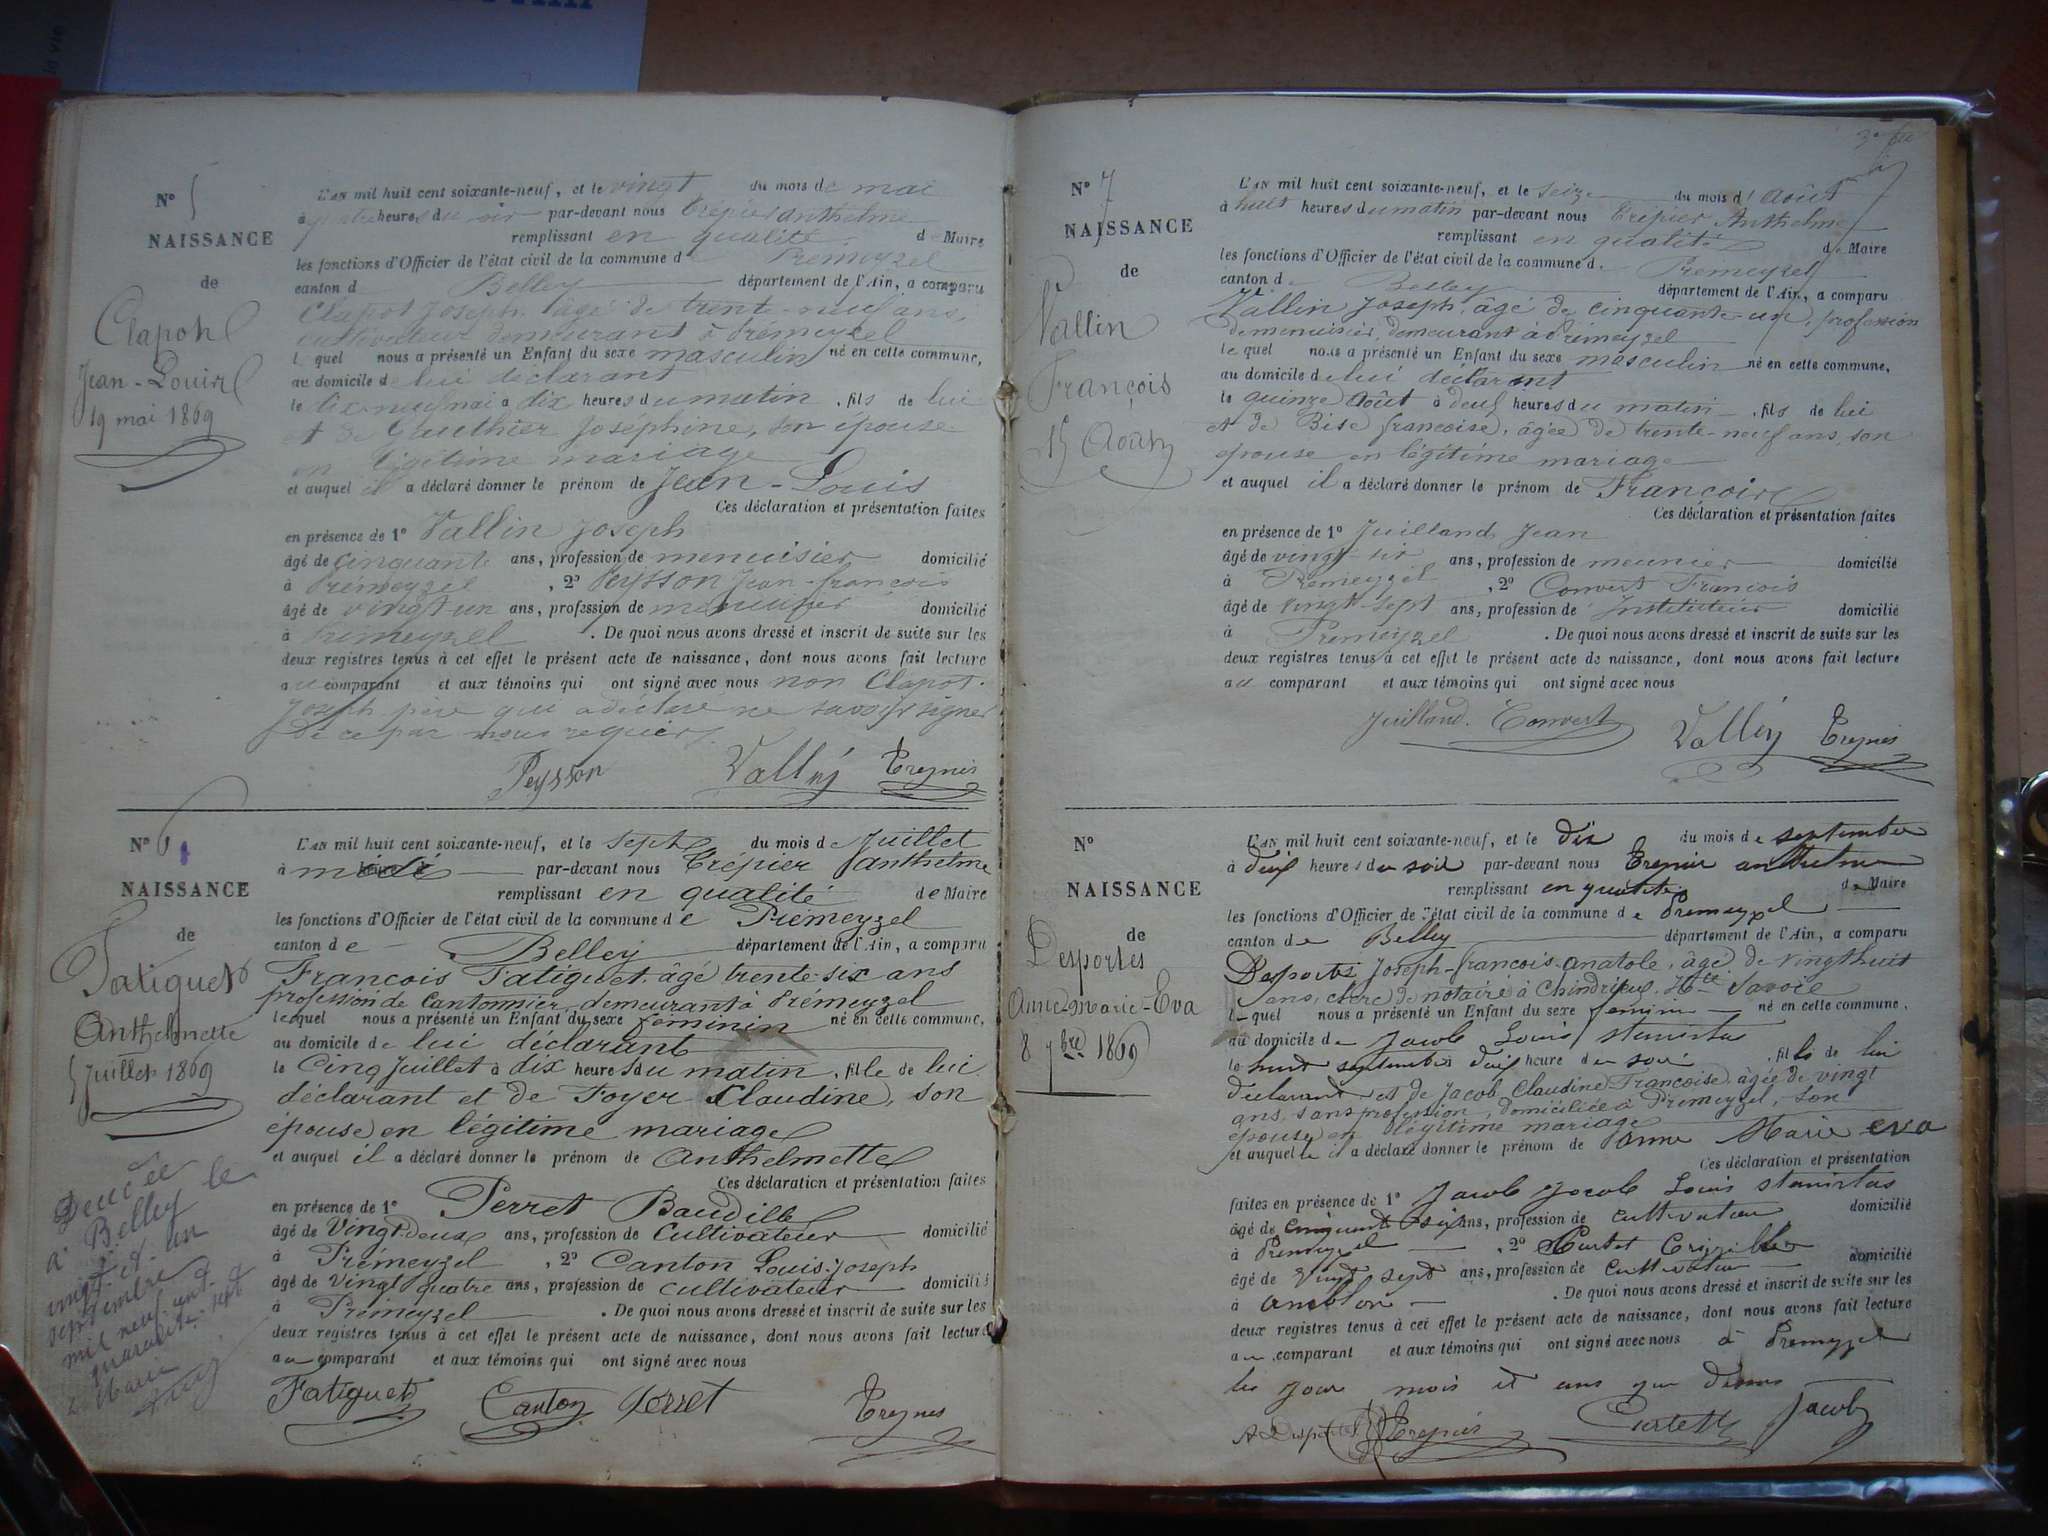 la vie
N° 5
NAISSANCE
de
Clapot
Jean-Louis
19 mai 1869
L'AN mil huit cent soixante-neuf, et le vingt du mois de mai
à quatre heures du soir par-devant nous Trépier anthelme
remplissant en qualité de Maire
les fonctions d'Officier de l'état civil de la commune d Prémeyzel
canton d Belley département de l'Ain, a comparu
Clapot Joseph, âgé de trente-neuf ans,
cultivateur demeurant à Prémeyzel
lequel nous a présenté un Enfant du sexe masculin né en cette commune,
au domicile de lui déclarant
le dix-neuf mai à dix heures du matin, fils de lui
et de Gauthier Joséphine, son épouse
en légitime mariage
et auquel il a déclaré donner le prénom de Jean-Louis
Ces déclaration et présentation faites
en présence de 1° Vallin Joseph
âgé de cinquante ans, profession de menuisier domicilié
à Prémeyzel, 2° Peysson Jean-françois
âgé de vingt-un ans, profession de meunier domicilié
à Prémeyzel. De quoi nous avons dressé et inscrit de suite sur les
deux registres tenus à cet effet le présent acte de naissance, dont nous avons fait lecture
au comparant et aux témoins qui ont signé avec nous non Clapot
Joseph père qui a déclaré ne savoir signer
de ce par nous requis.
Peysson Vallin Trépier
N° 6
NAISSANCE
de
Fatiguet
Anthelmette
5 Juillet 1869
L'AN mil huit cent soixante-neuf, et le sept du mois de Juillet
à midi par-devant nous Trépier anthelme
remplissant en qualité de Maire
les fonctions d'Officier de l'état civil de la commune de Prémeyzel
canton de Belley département de l'Ain, a comparu
François Fatiguet, âgé trente-six ans
profession de Cantonnier, demeurant à Prémeyzel
lequel nous a présenté un Enfant du sexe féminin né en cette commune,
au domicile de lui déclarant
le Cinq Juillet à dix heures du matin, fille de lui
déclarant et de Foyer Claudine, son
épouse en légitime mariage
et auquel il a déclaré donner le prénom de Anthelmette
Ces déclaration et présentation faites
en présence de 1° Perret Baudille
âgé de Vingt-deux ans, profession de Cultivateur domicilié
à Prémeyzel, 2° Canton Louis-Joseph
âgé de Vingt quatre ans, profession de cultivateur domicilié
à Prémeyzel. De quoi nous avons dressé et inscrit de suite sur les
deux registres tenus à cet effet le présent acte de naissance, dont nous avons fait lecture
au comparant et aux témoins qui ont signé avec nous
Fatiguet Canton Perret Trépier
Décédée
à Belley le
vingt-et-un
septembre
mil neuf cent
quarante-sept
Le Maire
N° 7
NAISSANCE
de
Vallin
François
15 Août
L'AN mil huit cent soixante-neuf, et le seize du mois d'Août
à huit heures du matin par-devant nous Trépier Anthelme
remplissant en qualité de Maire
les fonctions d'Officier de l'état civil de la commune d. Prémeyzel
canton d Belley département de l'Ain, a comparu
Vallin Joseph, âgé de cinquante-un, profession
de menuisier, demeurant à Prémeyzel
lequel nous a présenté un Enfant du sexe masculin né en cette commune,
au domicile de lui déclarant
le quinze Août à deux heures du matin, fils de lui
et de Bise françoise, âgée de trente-neuf ans, son
épouse en légitime mariage
et auquel il a déclaré donner le prénom de François
Ces déclaration et présentation faites
en présence de 1° Juilland Jean
âgé de vingt-six ans, profession de meunier domicilié
à Prémeyzel, 2° Convert François
âgé de vingt-sept ans, profession de Instituteur domicilié
à Prémeyzel. De quoi nous avons dressé et inscrit de suite sur les
deux registres tenus à cet effet le présent acte de naissance, dont nous avons fait lecture
au comparant et aux témoins qui ont signé avec nous
Juilland. Convert Vallin Trépier
N°
NAISSANCE
de
Desportes
Anne-Marie-Eva
8 7bre 1869
L'AN mil huit cent soixante-neuf, et le dix du mois de septembre
à deux heures du soir par-devant nous Trepier anthelme
remplissant en qualité de Maire
les fonctions d'Officier de l'état civil de la commune de Premeyzel
canton de Belley département de l'Ain, a comparu
Desportes Joseph-françois-anatole, âgé de vingt huit
ans, clerc de notaire à Chindrieux, Hte Savoie
lequel nous a présenté un Enfant du sexe feminin né en cette commune,
au domicile de Jacob Louis stanislas
le huit septembre deux heure du soir, fille de lui
declarant et de Jacob Claudine Françoise, âgée de vingt
ans, sans profession, domiciliée à Prémeyzel, son
épouse en légitime mariage
et auquel il a déclaré donner le prénom de anne Marie eva
Ces déclaration et présentation
faites en présence de 1° Jacob Jacob Louis stanislas
âgé de cinquante six ans, profession de cultivateur domicilié
à Premeyzel, 2° Curtet
âgé de vingt sept ans, profession de cultivateur domicilié
à ambléon. De quoi nous avons dressé et inscrit de suite sur les
deux registres tenus à cet effet le présent acte de naissance, dont nous avons fait lecture
au comparant et aux témoins qui ont signé avec nous à Premeyzel
les jour mois et ans que dessus
A Desportes Trepier Curtet Jacob